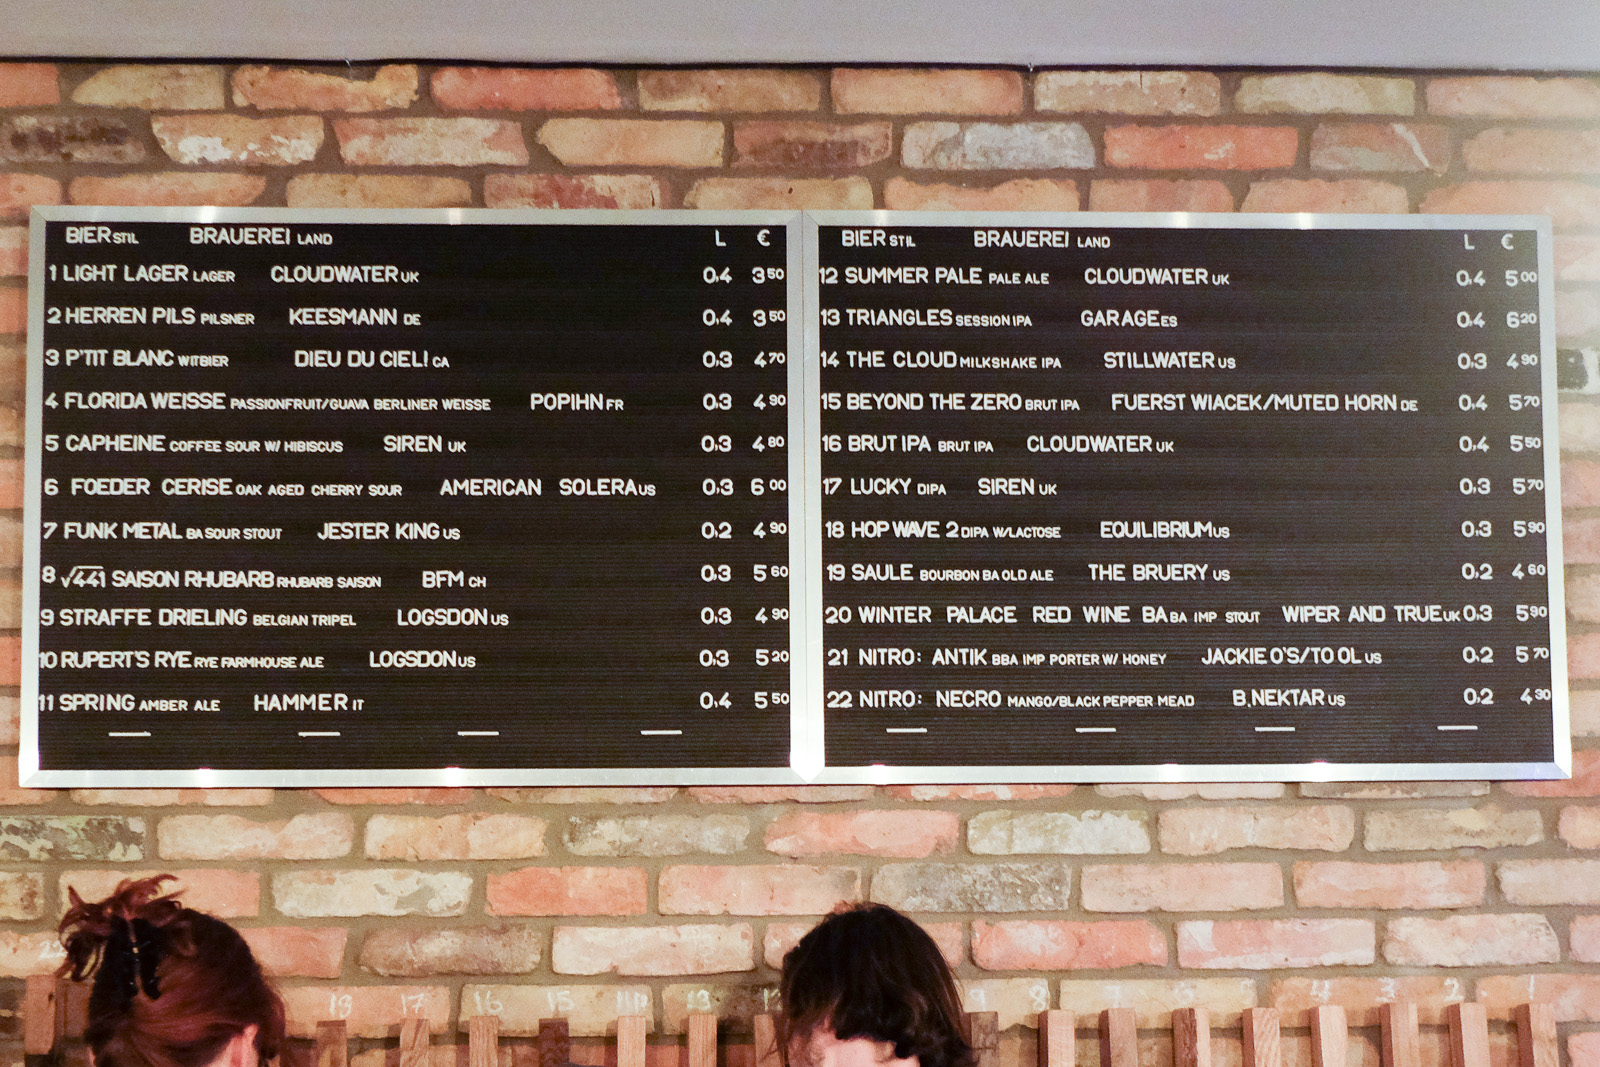 BIER STIL BRAUEREI LAND L €
1 LIGHT LAGER LAGER CLOUDWATER UK 0,4 3 50
2 HERREN PILS PILSNER KEESMANN DE 0,4 3 50
3 P'TIT BLANC WITBIER DIEU DU CIEL! CA 0,3 4 70
4 FLORIDA WEISSE PASSIONFRUIT/GUAVA BERLINER WEISSE POPIHN FR 0,3 4 90
5 CAPHEINE COFFEE SOUR W/ HIBISCUS SIREN UK 0,3 4 80
6 FOEDER CERISE OAK AGED CHERRY SOUR AMERICAN SOLERA US 0,3 6 00
7 FUNK METAL BA SOUR STOUT JESTER KING US 0,2 4 90
8 √441 SAISON RHUBARB RHUBARB SAISON BFM CH 0,3 5 60
9 STRAFFE DRIELING BELGIAN TRIPEL LOGSDON US 0,3 4 90
10 RUPERT'S RYE RYE FARMHOUSE ALE LOGSDON US 0,3 5 20
11 SPRING AMBER ALE HAMMER IT 0,4 5 50
BIER STIL BRAUEREI LAND L €
12 SUMMER PALE PALE ALE CLOUDWATER UK 0,4 5 00
13 TRIANGLES SESSION IPA GARAGE ES 0,4 6 20
14 THE CLOUD MILKSHAKE IPA STILLWATER US 0,3 4 90
15 BEYOND THE ZERO BRUT IPA FUERST WIACEK/MUTED HORN DE 0,4 5 70
16 BRUT IPA BRUT IPA CLOUDWATER UK 0,4 5 50
17 LUCKY DIPA SIREN UK 0,3 5 70
18 HOP WAVE 2 DIPA W/LACTOSE EQUILIBRIUM US 0,3 5 90
19 SAULE BOURBON BA OLD ALE THE BRUERY US 0,2 4 60
20 WINTER PALACE RED WINE BA BA IMP STOUT WIPER AND TRUE UK 0,3 5 90
21 NITRO: ANTIK BBA IMP PORTER W/ HONEY JACKIE O'S/TO OL US 0,2 5 70
22 NITRO: NECRO MANGO/BLACK PEPPER MEAD B.NEKTAR US 0,2 4 30
22 18 17 16 15 14 13 9 8 7 6 5 4 3 2 1